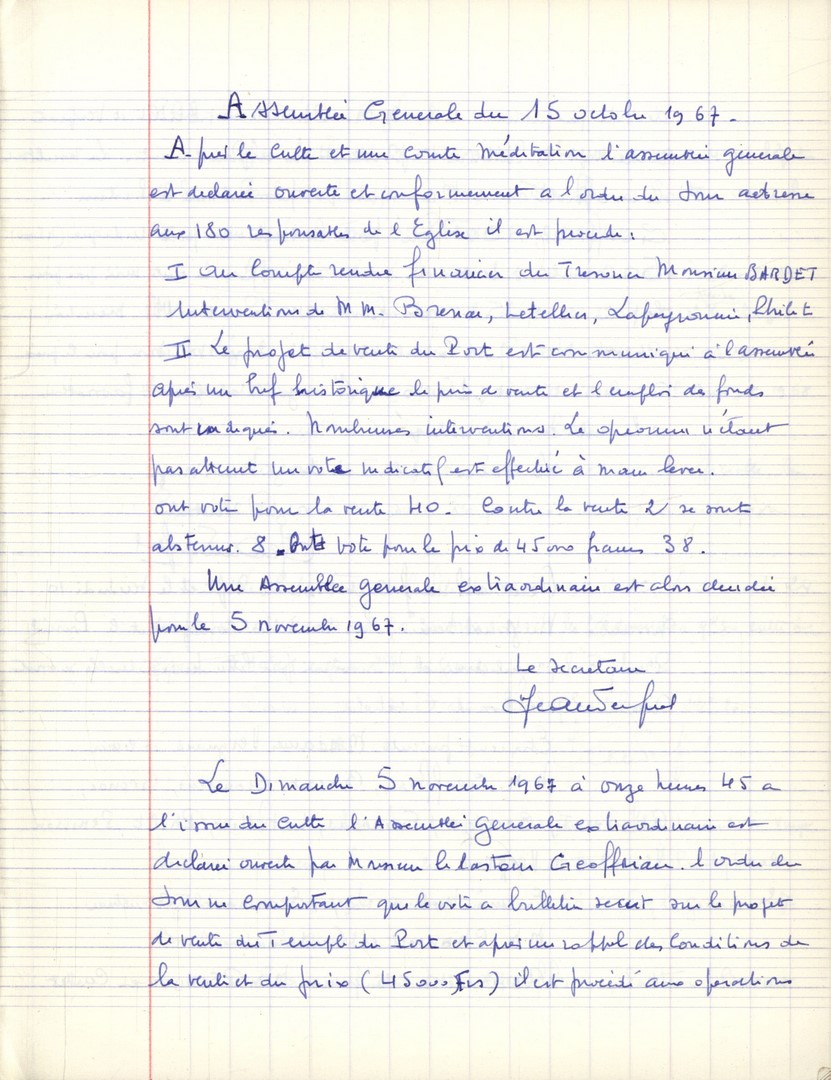 Assemblée Generale du 15 octobre 1967.
Après le Culte et une courte méditation l'assemblée generale
est declarée ouverte et conformement a l'ordre du Jour adressé
aux 180 responsables de l'Eglise il est procede :
I au Compte rendu financier du Tresorier Monsieur BARDET
Interventions de M M. Letellier,
II Le projet de vente du Port est communiqué à l'assemblée
après un bref historique le prix de vente et l'emploi des fonds
sont indiqués. Nombreuses interventions. Le quorum n'étant
pas atteint un vote indicatif est effectué à main levée.
ont voté pour la vente 40. Contre la vente 2 se sont
abstenus. 8. Ont voté pour le prix de 45 000 francs 38.
Une Assemblée generale extraordinaire est alors decidée
pour le 5 novembre 1967.
Le secretaire
Le Dimanche 5 novembre 1967 à onze heures 45 a
l'issue du Culte l'Assemblée Generale extraordinaire est
declarée ouverte par Monsieur le Pasteur l'ordre du
Jour ne comportant que le vote a bulletin secret sur le projet
de vente du Temple du Port et après un rappel des Conditions de
la vente et du prix (45000 Frs) il est procédé aux operations